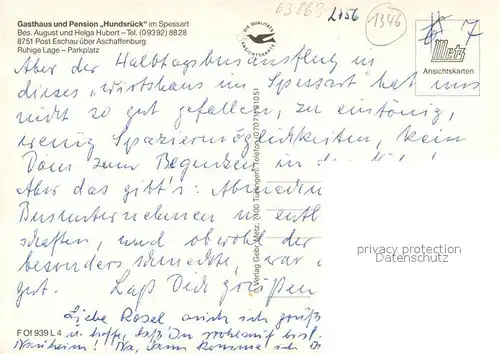 Gasthaus und Pension „Hundsrück" im Spessart
Bes. August und Helga Hubert – Tel. (09392) 8828
8751 Post Eschau über Aschaffenburg
Ruhige Lage – Parkplatz
DIE QUALITÄTS
ANSICHTSKARTE
63863
2156
1346
7
Metz
Ansichtskarten
Aber der Halbtagsbusausflug in
dieses „Wirtshaus im Spessart" hat uns
nicht so gut gefallen, zu eintönig,
wenig Spaziermöglichkeiten, kein
Dom zum Begucken in
Aber das gibt's:
Busunternehmen
schaften, und obwohl der
besonders schmeckte, war
gut. Laß Dich grüßen
Liebe Rosel auch ich grüß
u. hoffe, daß Du wohlauf bist.
Nauheim! Na, dann komme ich
Verlag Gebr. Metz, 7400 Tübingen, Telefon (07071) 91051
F Of 939 L 4
privacy protection
DAMALS.COM